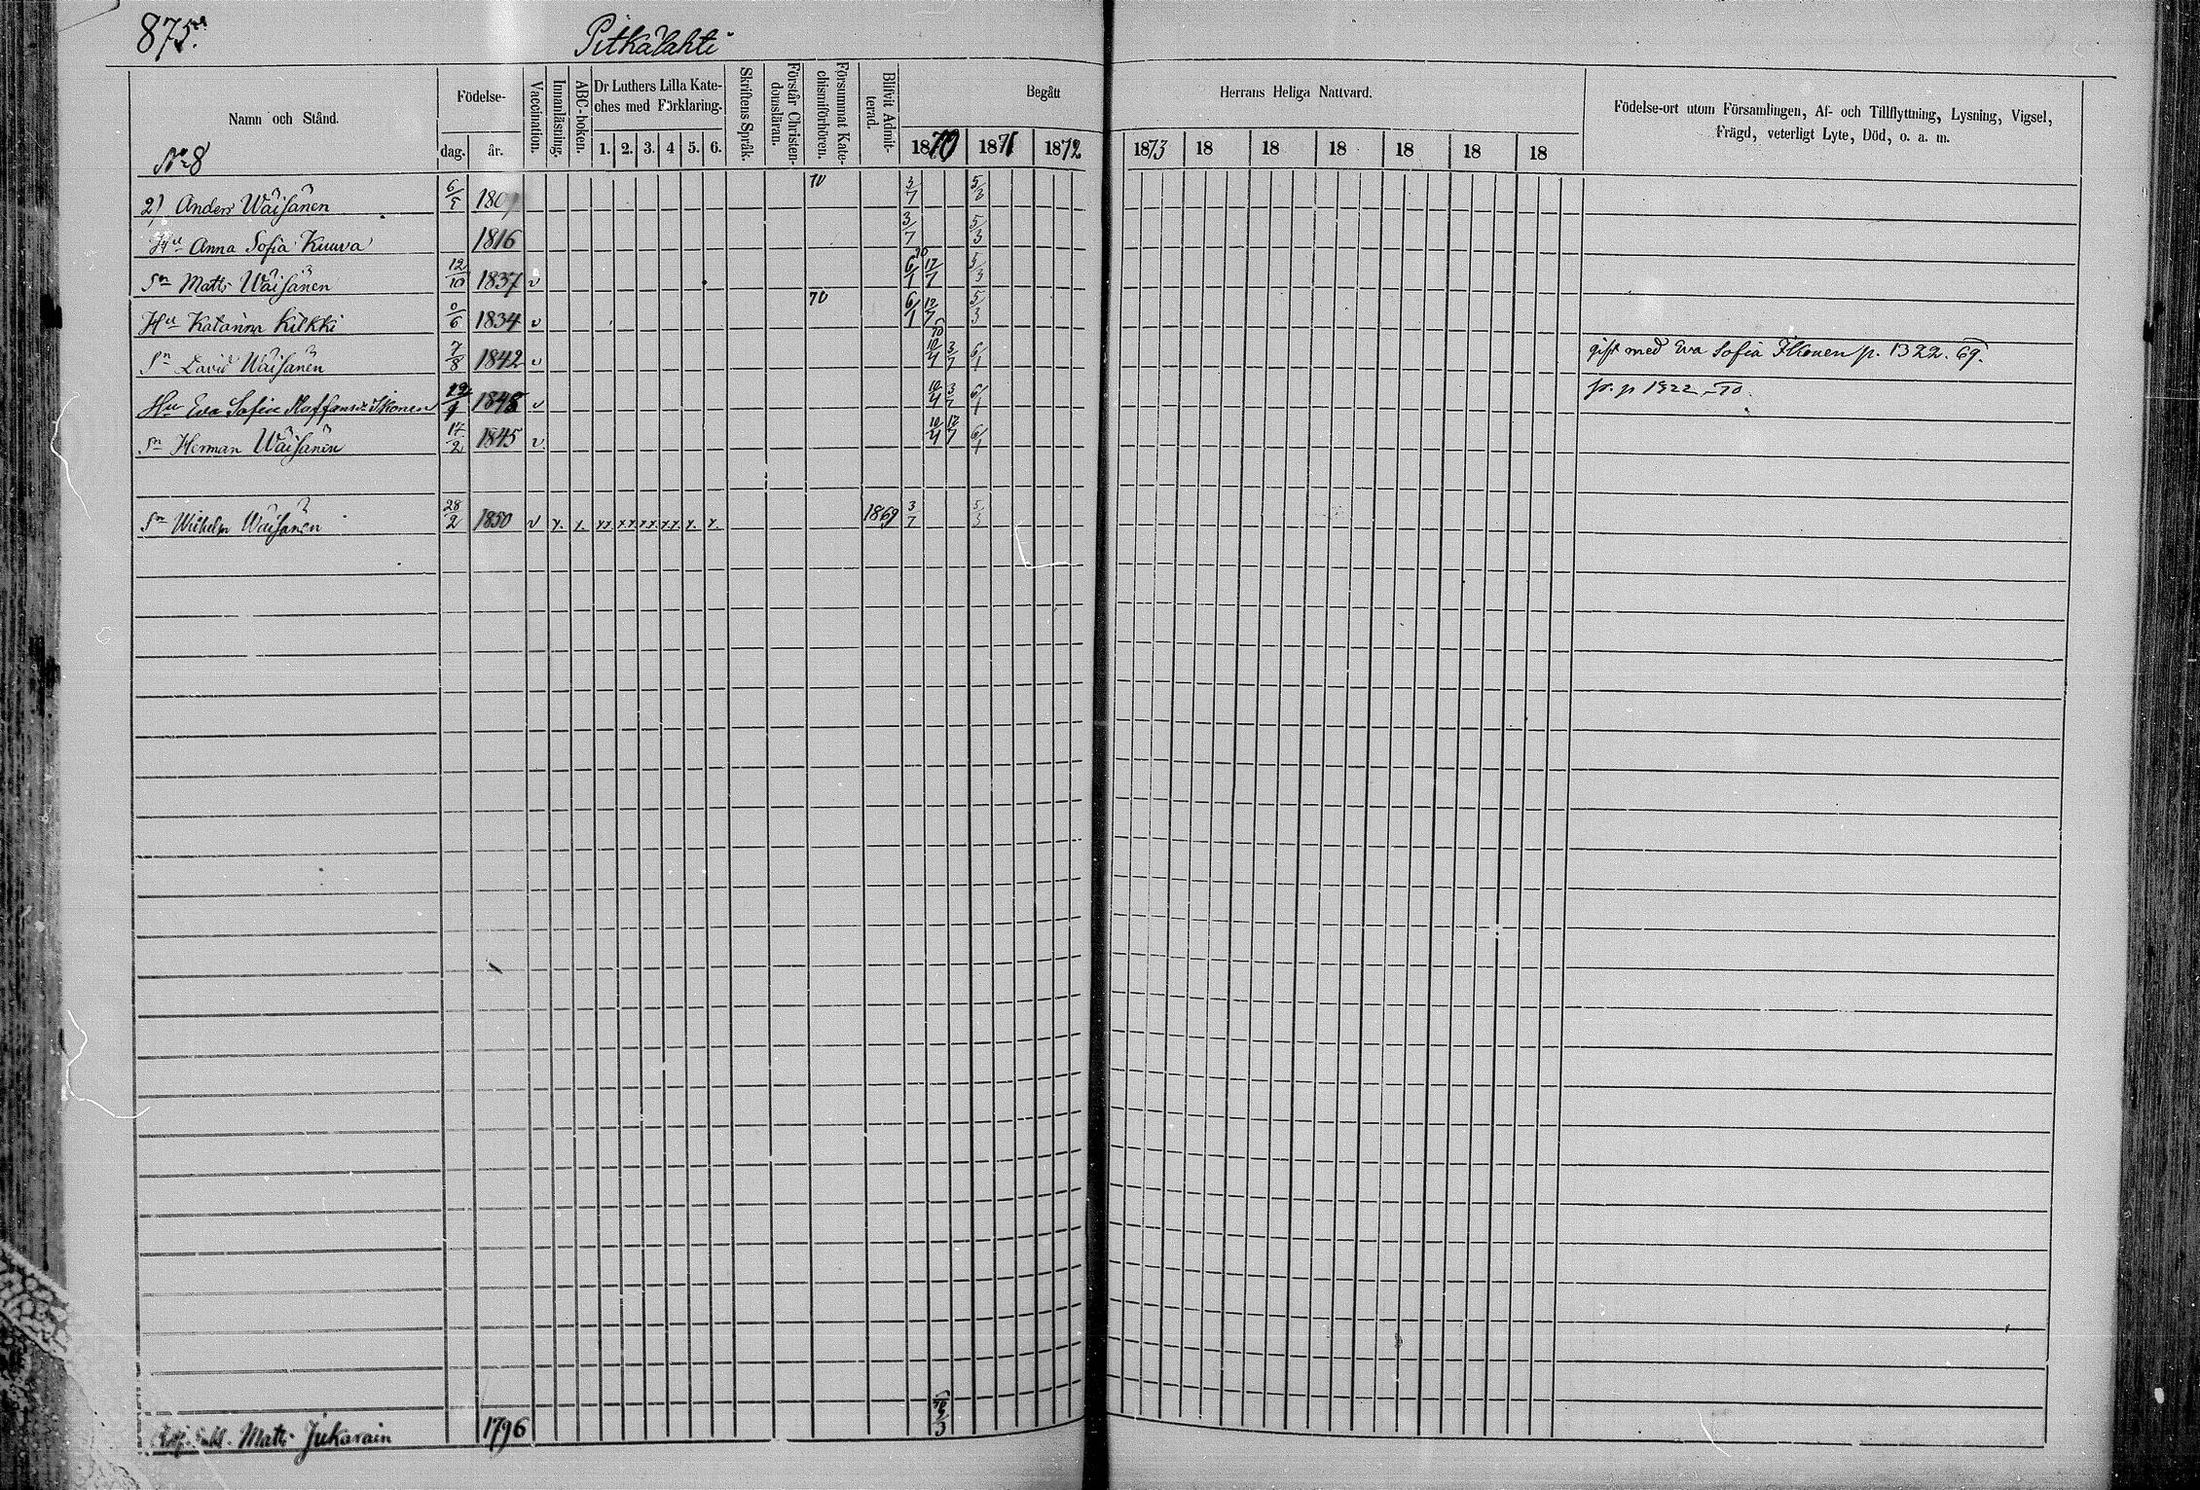 875.
Pitkälahti
Namn och Stånd.
Födelse-
dag. år.
Vaccination.
Innanläsning.
ABC-boken.
Dr Luthers Lilla Kate-
ches med Förklaring.
1. 2. 3. 4 5. 6.
Skriftens Språk.
Förstår Christen-
domsläran.
Försummat Kate-
chismiförhören.
Blifvit Admit-
terad.
Begått Herrans Heliga Nattvard.
1870 1871 1872 1873 18 18 18 18 18 18
Födelse-ort utom Församlingen, Af- och Tillflyttning, Lysning, Vigsel,
Frägd, veterligt Lyte, Död, o. a. m.
No 8
2) Anders Wäisänen 6/5 70 3/7 5/3
Hu Anna Sofia Kuuva 1816 3/7 5/3
Sn Matts Wäisänen 12/10 1837 v 6/1 12/7 5/3
Hu Katarina Kilkki 6 1834 v 70 6/1 12/7 5/3
Sn David Wäisänen 7/8 1842 v 10/4 3/7 6/1 gift med Eva Sofia Ikonen p. 1322. 69.
Hu Eva Sofia Ikonen 1848 v 10/4 3/7 6/1 fr. p 1322 70.
Sn Herman Wäisänen 17/2 1845 v 10/4 12/7 6/1
Sn Wilhelm Wäisänen 28/2 1850 v x. x. xx xx xx xx x. x. 1869 3/7 5/3
Matts Jukarain 1796